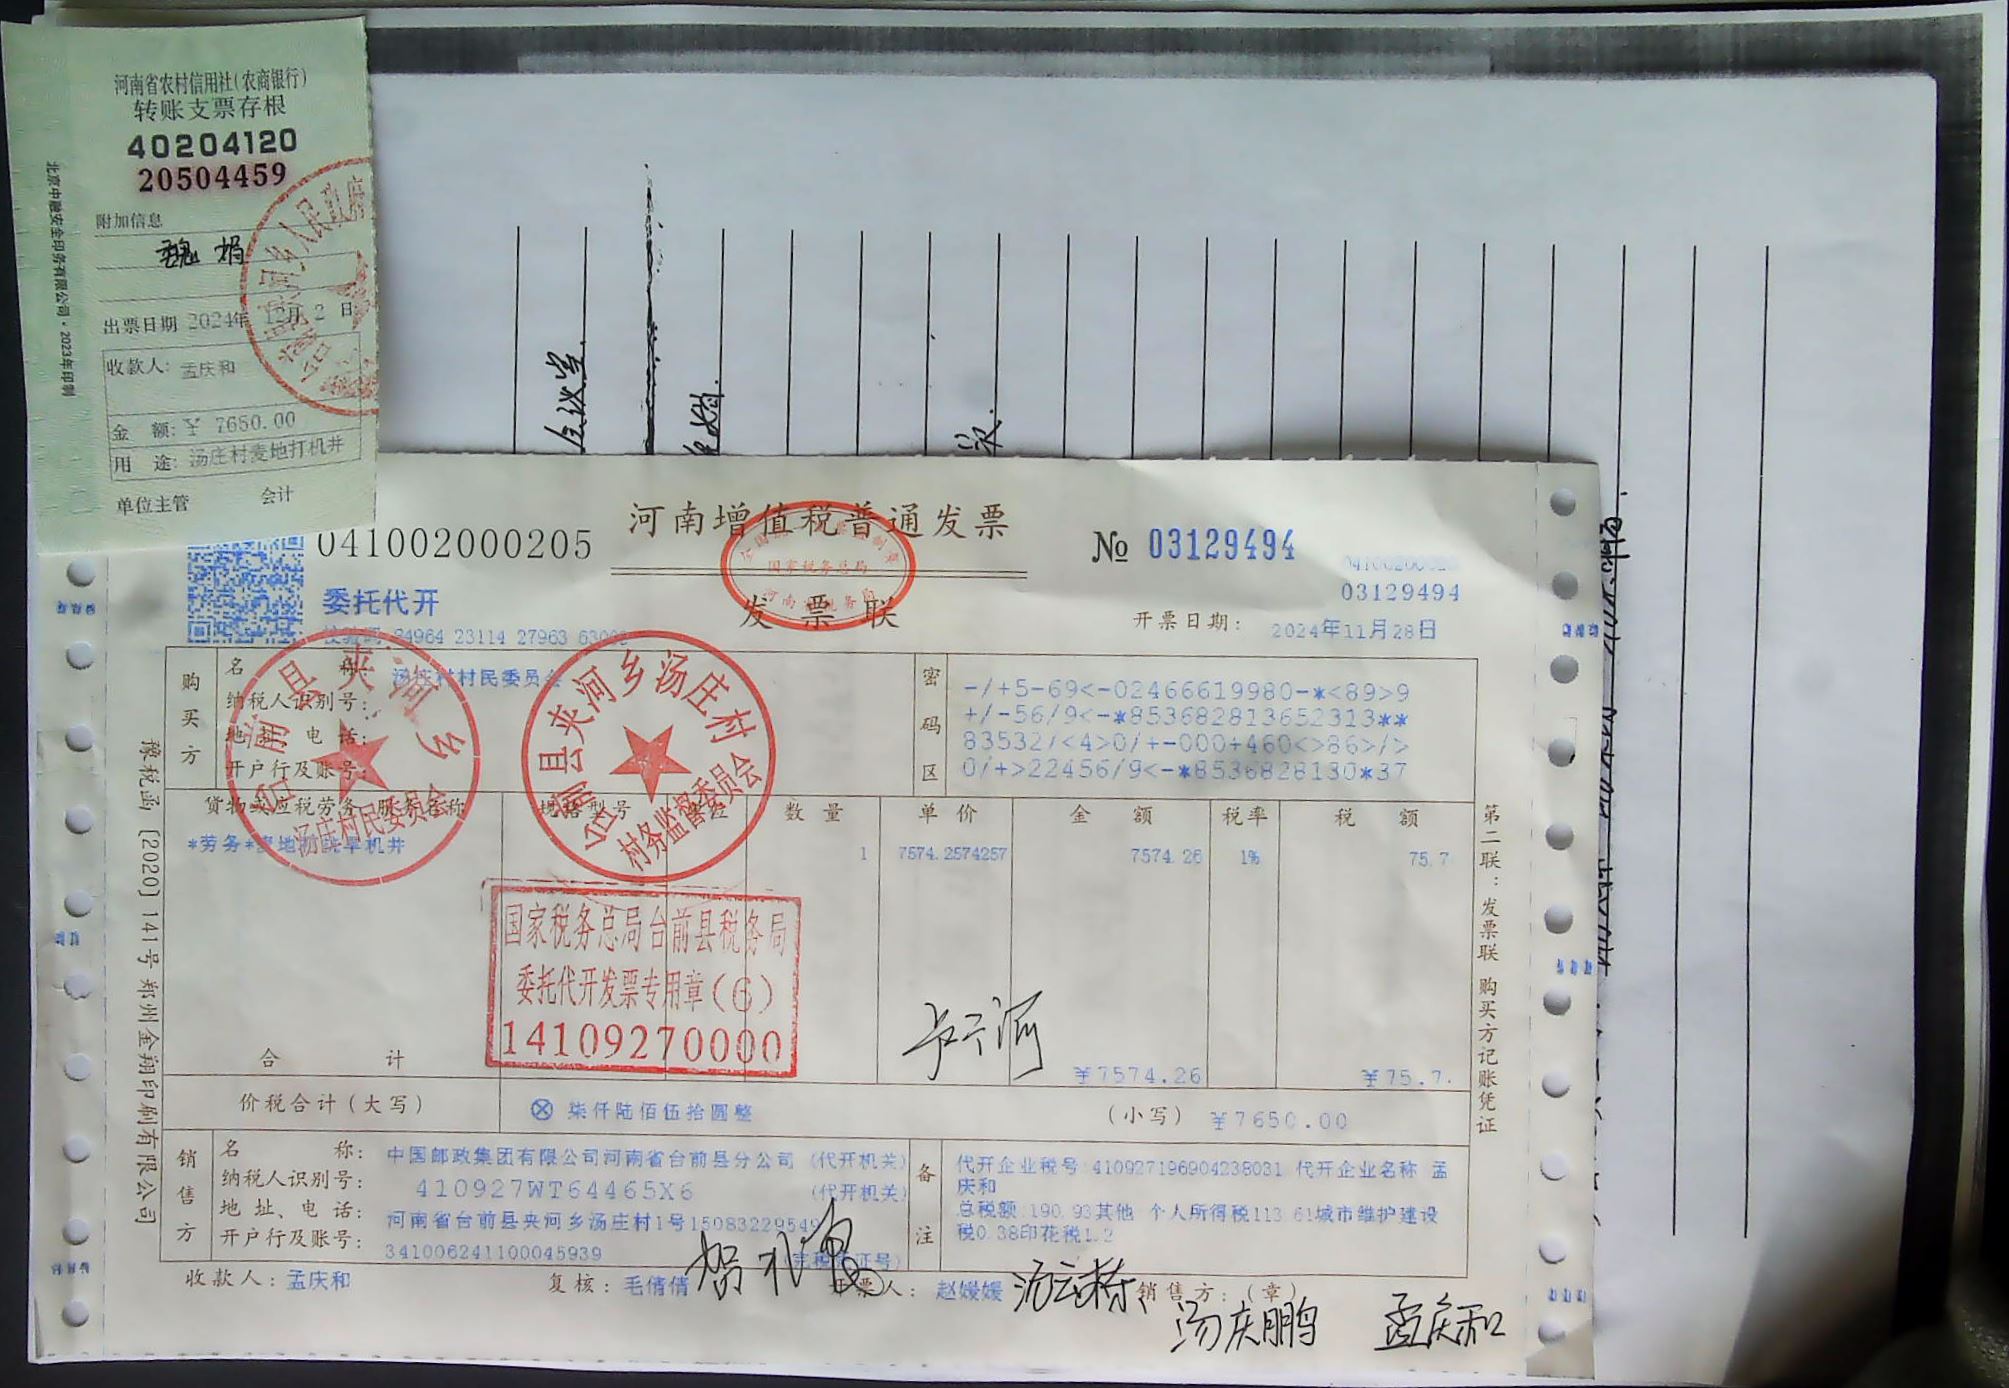 河南省农村信用社(农商银行)
转账支票存根
40204120
20504459
附加信息
魏娟
出票日期 2024年 12月 2 日
收款人: 孟庆和
金 额: ¥ 7650.00
用 途: 汤庄村麦地打机井
单位主管 会计
北京中融安全印务有限公司·2023年印制
会议室
041002000205
河南增值税普通发票
№ 03129494
03129494
委托代开
发票联
开票日期: 2024年11月28日
国家税务总局
购买方
名 称: 汤庄村村民委员会
纳税人识别号:
地址、电话:
开户行及账号:
密码区
-/+5-69<-02466619980-*<89>9
+/-56/9<-*853682813652313**
83532/<4>0/+-000+460<>86>/>
0/+>22456/9<-*8536828130*37
货物或应税劳务、服务名称 规格型号 单位 数量 单价 金额 税率 税额
1 7574.2574257 7574.26 1% 75.7
台前县夹河乡
汤庄村民委员会
台前县夹河乡汤庄村
村务监督委员会
国家税务总局台前县税务局
委托代开发票专用章(6)
14109270000
合 计 ¥7574.26 ¥75.7.
价税合计(大写) ⊗ 柒仟陆佰伍拾圆整 (小写) ¥7650.00
销售方
名 称: 中国邮政集团有限公司河南省台前县分公司 (代开机关)
纳税人识别号: 410927WT64465X6 (代开机关)
地址、电话: 河南省台前县夹河乡汤庄村1号15083229549
开户行及账号: 341006241100045939 (完税凭证号)
备注
代开企业税号:410927196904238031 代开企业名称:孟
庆和
总税额:190.93其他 个人所得税113.61城市维护建设
税0.38印花税1.2
收款人: 孟庆和 复核: 毛倩倩 开票人: 赵媛媛 销售方:(章)
汤庆鹏 孟庆和
豫税函〔2020〕141号 郑州金翔印刷有限公司
第二联:发票联 购买方记账凭证